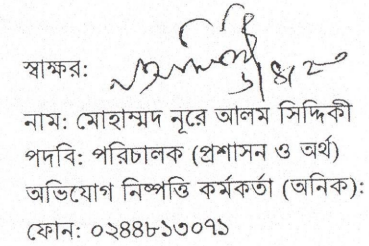 স্বাক্ষর:
নাম: মোহাম্মদ নূরে আলম সিদ্দিকী
পদবি: পরিচালক (প্রশাসন ও অর্থ)
অভিযোগ নিষ্পত্তি কর্মকর্তা (অনিক):
ফোন: ০২৪৪৮১৩০৭১